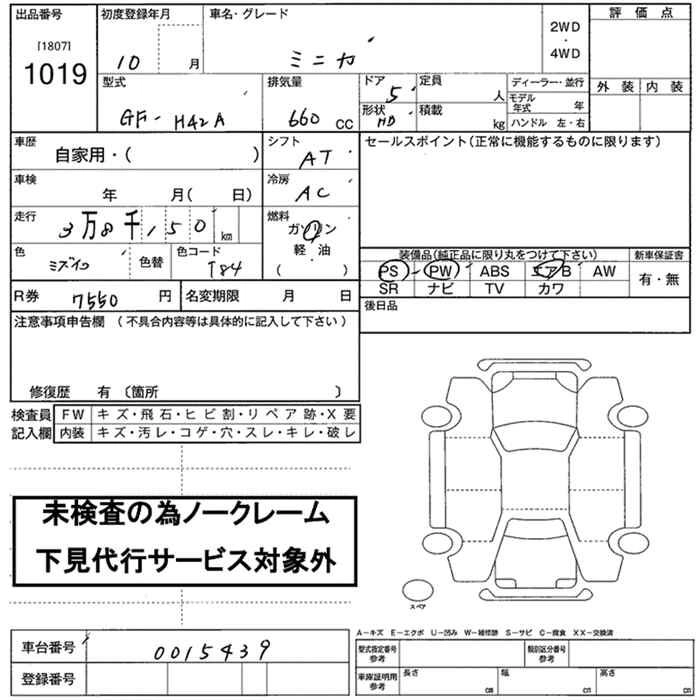 出品番号 初度登録年月 車名・グレード 評価点
[1807] 2WD
1019 10 月 ミニカ ・
4WD 外装 内装
型式 排気量 ドア 5 定員 人 ディーラー・並行
GF- H42A 660 CC 形状 HD 積載 kg モデル年式 年
ハンドル 左・右
車歴 シフト セールスポイント(正常に機能するものに限ります)
自家用・( ) AT
車検 冷房
年 月( 日) AC
走行 燃料
3万8千150 km ガソリン
色 色替 色コード 軽油 装備品(純正品に限り丸をつけて下さい) 新車保証書
ミズイロ T84 ( ) PS PW ABS エアB AW 有・無
R券 7550 円 名変期限 月 日 SR ナビ TV カワ
注意事項申告欄 (不具合内容等は具体的に記入して下さい) 後日品
修復歴 有 〔箇所 〕
検査員 FW キズ・飛石・ヒビ割・リペア跡・X要
記入欄 内装 キズ・汚レ・コゲ・穴・スレ・キレ・破レ
未検査の為ノークレーム
下見代行サービス対象外
スペア
A-キズ E-エクボ U-凹み W-補修跡 S-サビ C-腐食 XX-交換済
車台番号 0015439 型式指定番号 参考 類別区分番号 参考
登録番号 車庫証明用 参考 長さ cm 幅 cm 高さ cm